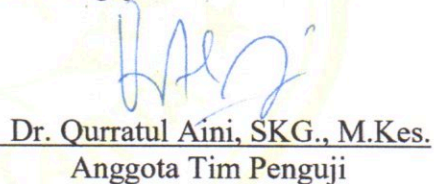 Dr. Qurratul Aini, SKG., M.Kes.
Anggota Tim Penguji